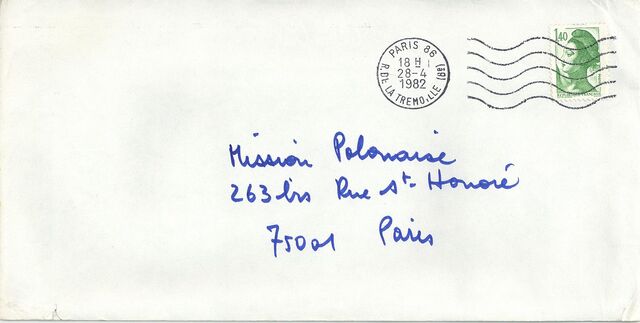 PARIS 86
18 H
28-4
1982
R. DE LA TREMOILLE (8E)
1,40
REPUBLIQUE FRANÇAISE
Mission Polonaise
263 bis Rue St-Honoré
75001 Paris